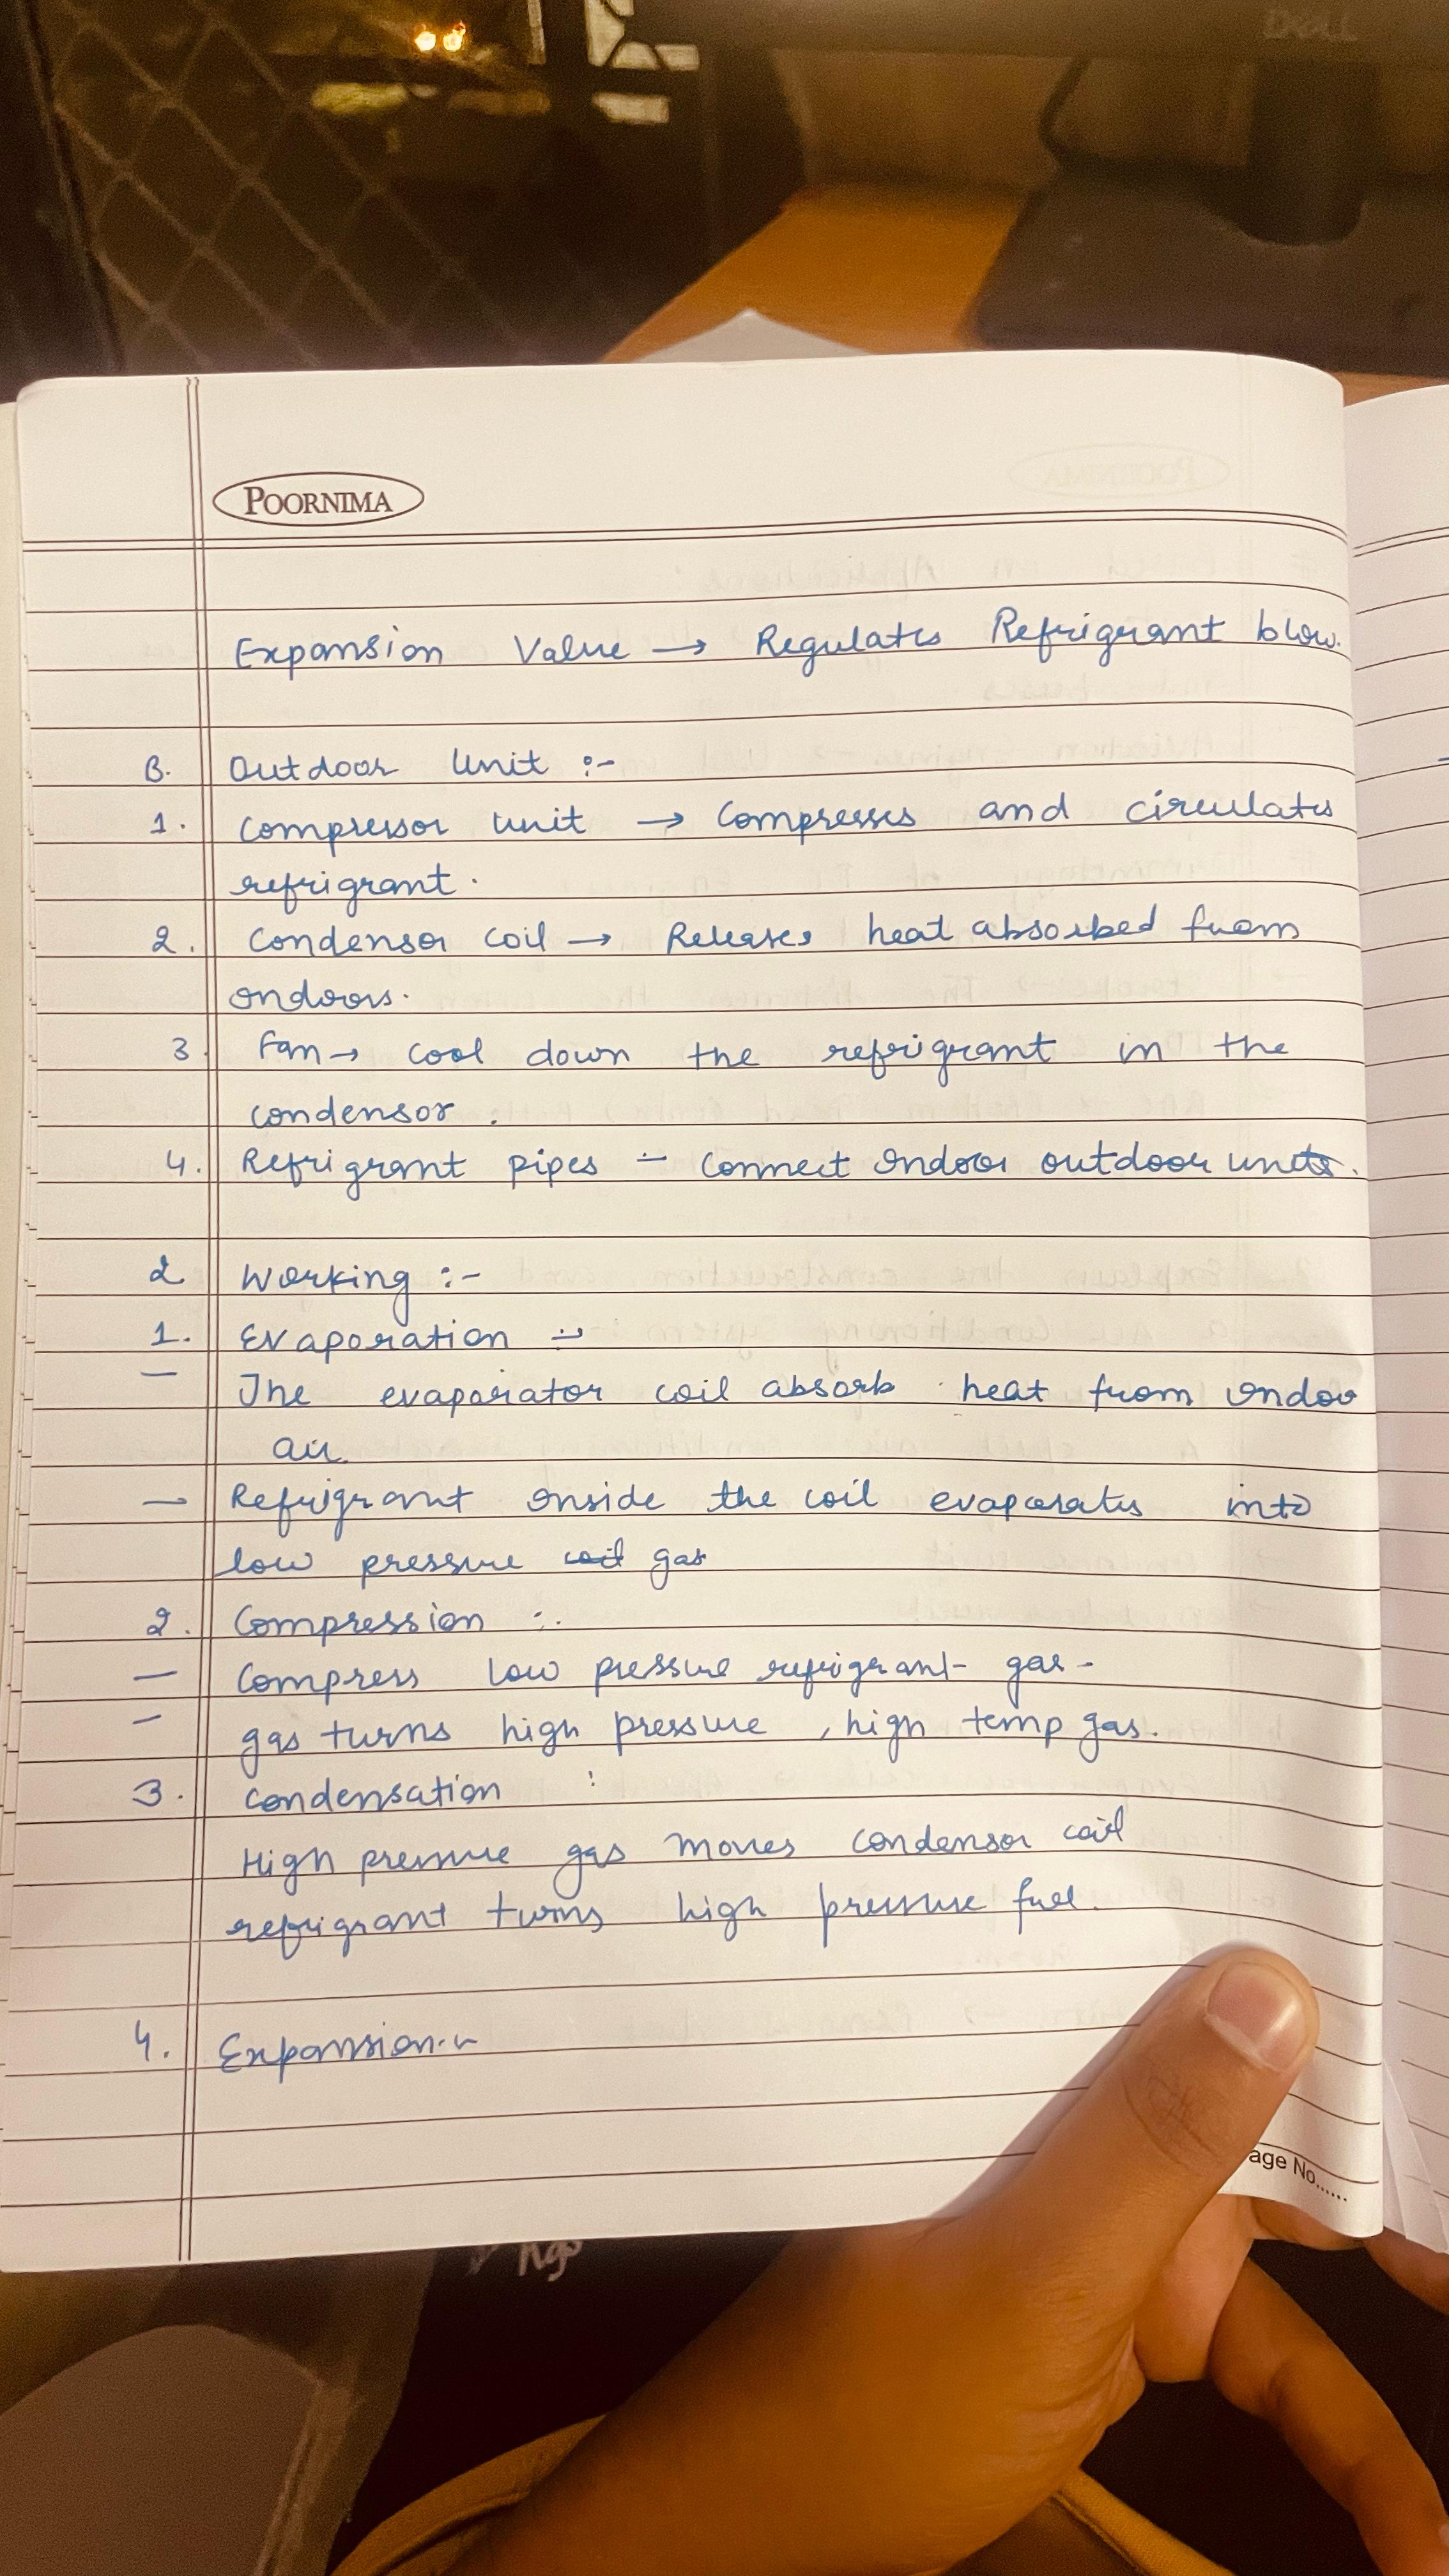 DELL
POORNIMA
Expansion Value → Regulates Refrigrant blow.
B. Outdoor Unit :-
1. Compressor Unit → Compresses and circulates
refrigrant.
2. Condensor coil → Releases heat absorbed from
indoors.
3. Fan → cool down the refrigrant in the
condensor.
4. Refrigrant pipes - Connect Indoor outdoor units.
2 Working :-
1. Evaporation :-
- The evaporator coil absorb heat from indoo
air.
- Refrigrant inside the coil evaporates into
low pressure coil gas
2. Compression :-
- Compress low pressure refrigrant gas -
- gas turns high pressure, high temp gas.
3. Condensation :
High pressure gas moves condensor coil
refrigrant turns high pressure fuel.
4. Expansion :-
age No......